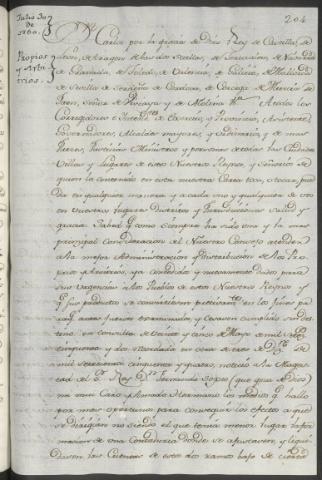 204
Julio 30
de
1760.
Propios
y Arbi
trios.
Dn Carlos por la gracia de Dios Rey de Castilla, de
Leon, de Aragon de las dos Sicilias, de Jerusalen, de Navarra
de Granada, de Toledo, de Valencia, de Galicia, de Mallorca
de Sevilla de Cerdeña de Cordova, de Corcega de Murcia de
Jaen, Señor de Vizcaya y de Molina &a A todos los
Corregidores e Intendtes de Exercito, y Provincia, Asistente,
Governadores, Alcaldes mayores, y ordinarios, y demas
Jueces, Justicias Ministros y personas de todas las Ciudades
Villas y Lugares de estos Nuestros Reynos, y Señorios de
quien lo contenido en esta nuestra Carta toca, o tocar pue
da en qualquier manera y a cada uno y qualquier de vos
en vuestros lugares Distritos y Jurisdicciones salud y
gracia: Sabed que como siempre ha sido una y la mas
principal Consideracion del Nuestro Consejo atender
a la mejor Administracion y Distribucion de los Pro
pios y Arbitrios, ya concedidos y nuevamente dados para
sus urgencias a los Pueblos de estos Nuestros Reynos y
qe sus productos se convirtiesen en los fines pa
qe fueron y cesasen cumplido su des
tino, en consulta de veinte y cinco de Mayo de mil setecs
cinquenta y dos recordada en once de
mil setecientos cinquenta y quatro, noticio a la Mages
tad del Sr Rey Dn Fernando Sexto (que goza de Dios)
mi muy Caro y Amado Hermano los medios qe hallo
por mas oportunos para conseguir los efectos a que
se dirigian no siendo el que tenia menor lugar la for
macion de una Contaduria donde se ajustasen, y liqui
dasen las Cuentas de estos dos ramos bajo de ciertas